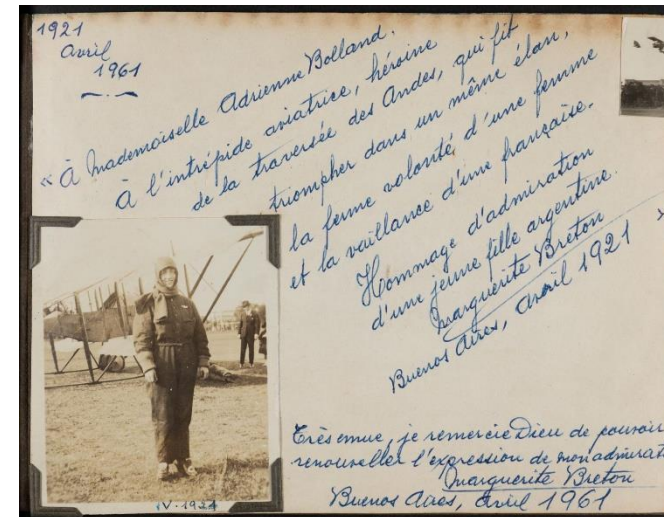 1921
avril
1961
« À Mademoiselle Adrienne Bolland.
À l'intrépide aviatrice, héroïne
de la traversée des Andes, qui fit
triompher dans un même élan,
la ferme volonté d'une femme
et la vaillance d'une française.
Hommage d'admiration
d'une jeune fille argentine.
Marguerite Breton »
Buenos Aires, avril 1921
IV-1921
Très émue, je remercie Dieu de pouvoir
renouveller l'expression de mon admirat
Marguerite Breton
Buenos Aires, avril 1961